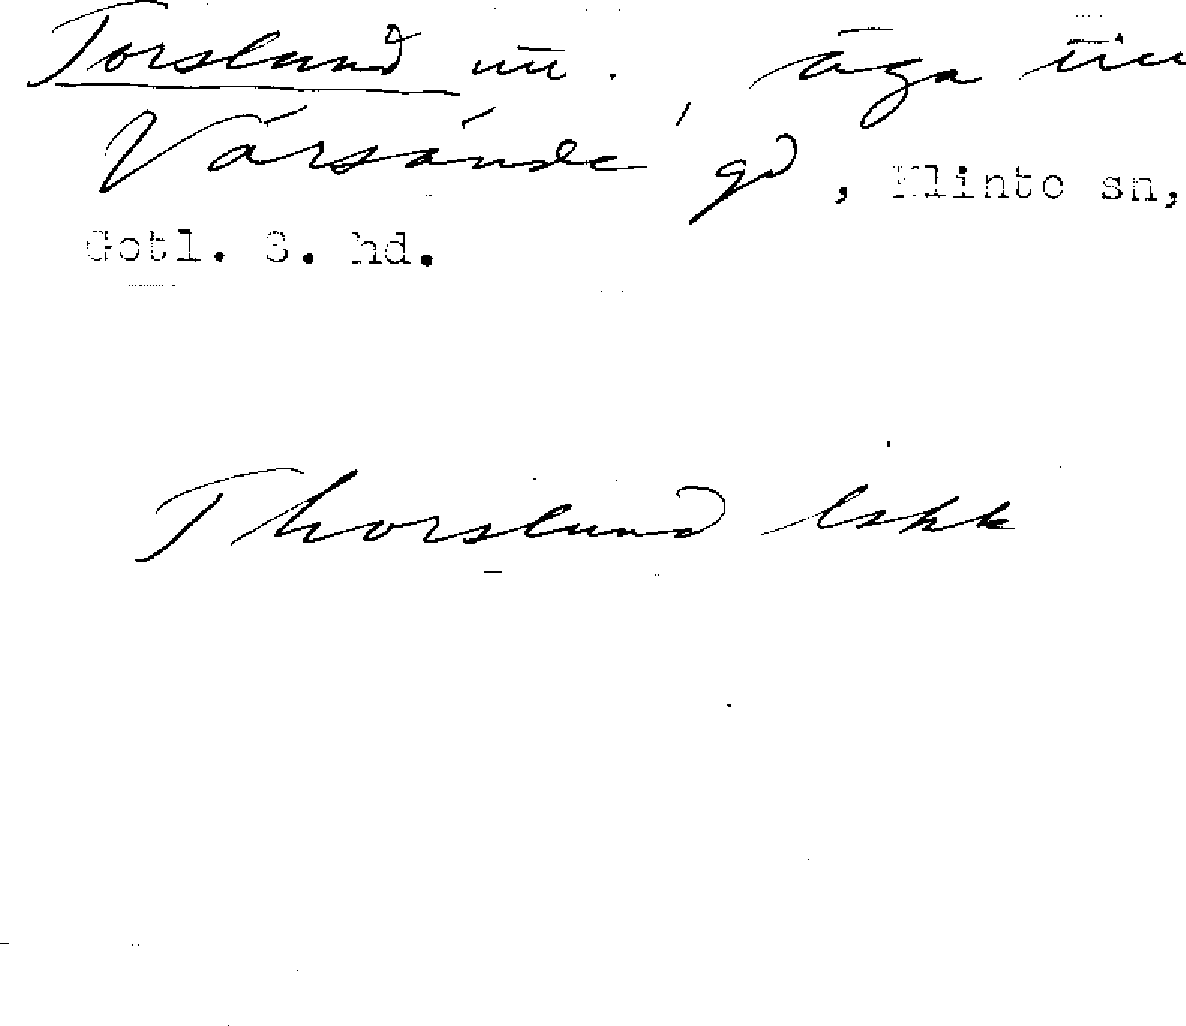 Torslund äga till
Värsände gd, Klinte sn,
Gotl. S. hd.
Thorslund lskk